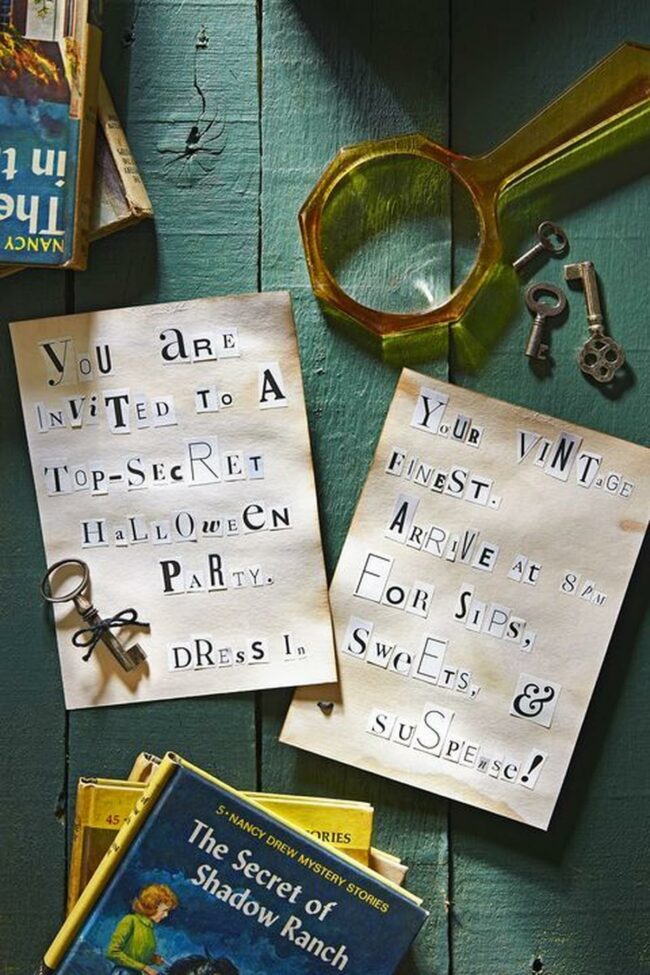 The
in th
NANCY
You are
invited to A
Top-SecRet
HaLLOweeN
PaRTy.
DRess In
Your VINTage
FINEST.
ARRIVE at 8PM
For SIPS,
SweETs, &
SUSPENse!
45
ORIES
5•NANCY DREW MYSTERY STORIES
The Secret of
Shadow Ranch